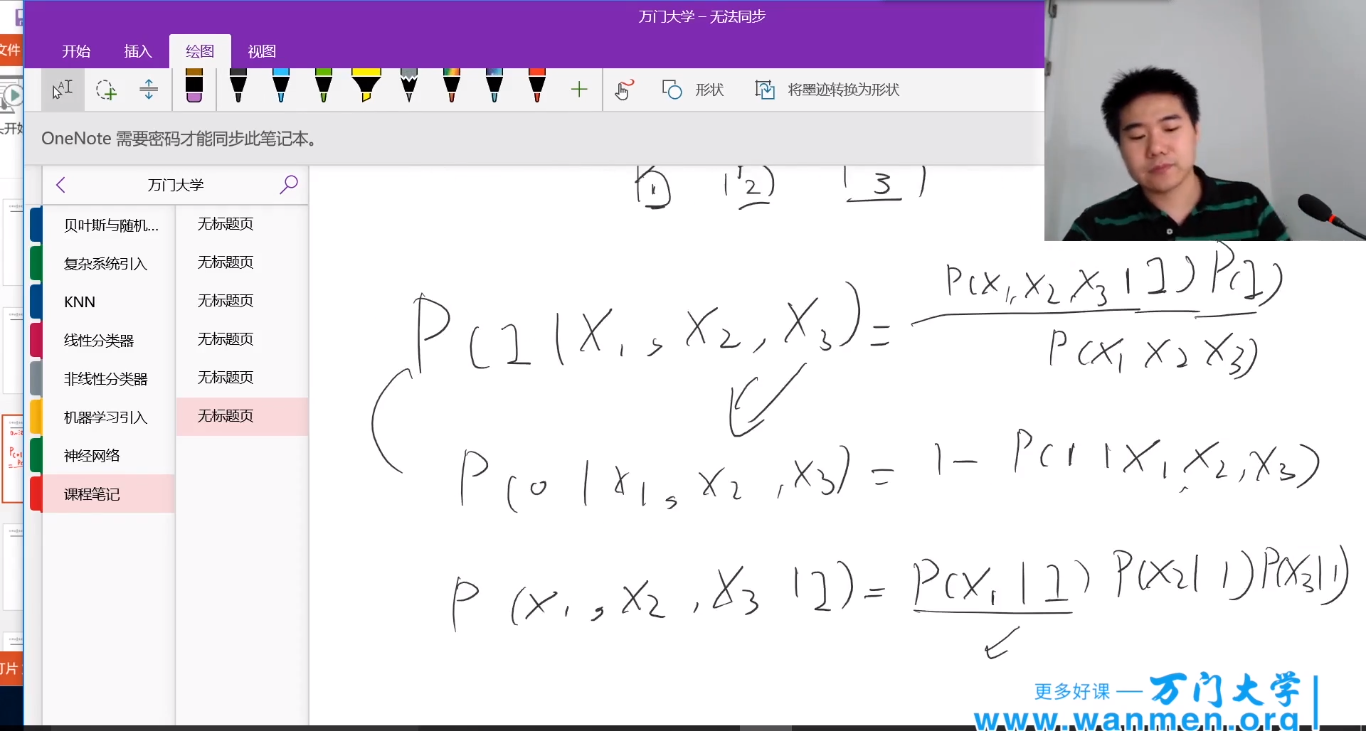 万门大学 – 无法同步
文件
开始 插入 绘图 视图
形状 将墨迹转换为形状
OneNote 需要密码才能同步此笔记本。
万门大学
贝叶斯与随机...
复杂系统引入
KNN
线性分类器
非线性分类器
机器学习引入
神经网络
课程笔记
无标题页
无标题页
无标题页
无标题页
无标题页
无标题页
1 2 3
P(1|X₁, X₂, X₃) = P(X₁, X₂, X₃|1) P(1)
P(X₁ X₂ X₃)
P(0|X₁, X₂, X₃) = 1 - P(1|X₁, X₂, X₃)
P(X₁, X₂, X₃|1) = P(X₁|1) P(X₂|1) P(X₃|1)
更多好课 — 万门大学
www.wanmen.org